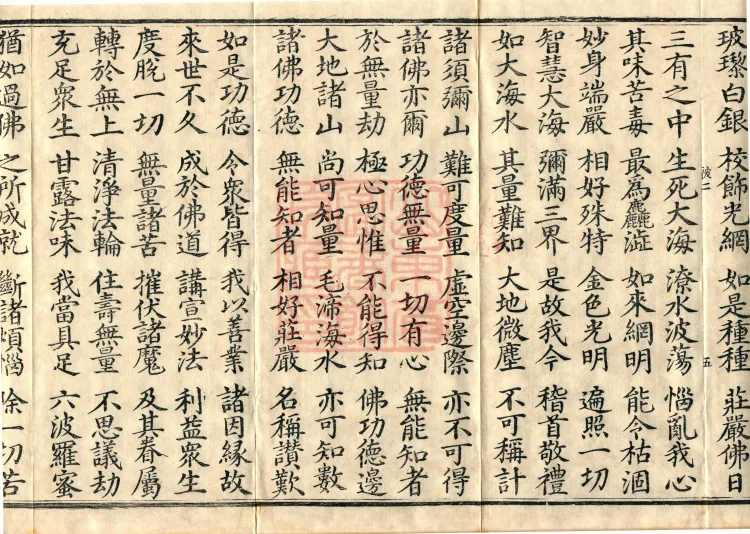 玻瓈白銀 校飾光網 如是種種 莊嚴佛日
三有之中 生死大海 潦水波蕩 惱亂我心
其味苦毒 最爲麤澁 如來網明 能令枯涸
妙身端嚴 相好殊特 金色光明 遍照一切
智慧大海 彌滿三界 是故我今 稽首敬禮
如大海水 其量難知 大地微塵 不可稱計
諸須彌山 難可度量 虛空邊際 亦不可得
諸佛亦爾 功德無量 一切有心 無能知者
於無量劫 極心思惟 不能得知 佛功德邊
大地諸山 尚可知量 毛渧海水 亦可知數
諸佛功德 無能知者 相好莊嚴 名稱讃歎
如是功德 令衆皆得 我以善業 諸因緣故
來世不久 成於佛道 講宣妙法 利益衆生
度脫一切 無量諸苦 摧伏諸魔 及其眷屬
轉於無上 清淨法輪 住壽無量 不思議劫
充足衆生 甘露法味 我當具足 六波羅蜜
猶如過佛 之所成就 斷諸煩惱 除一切苦
五